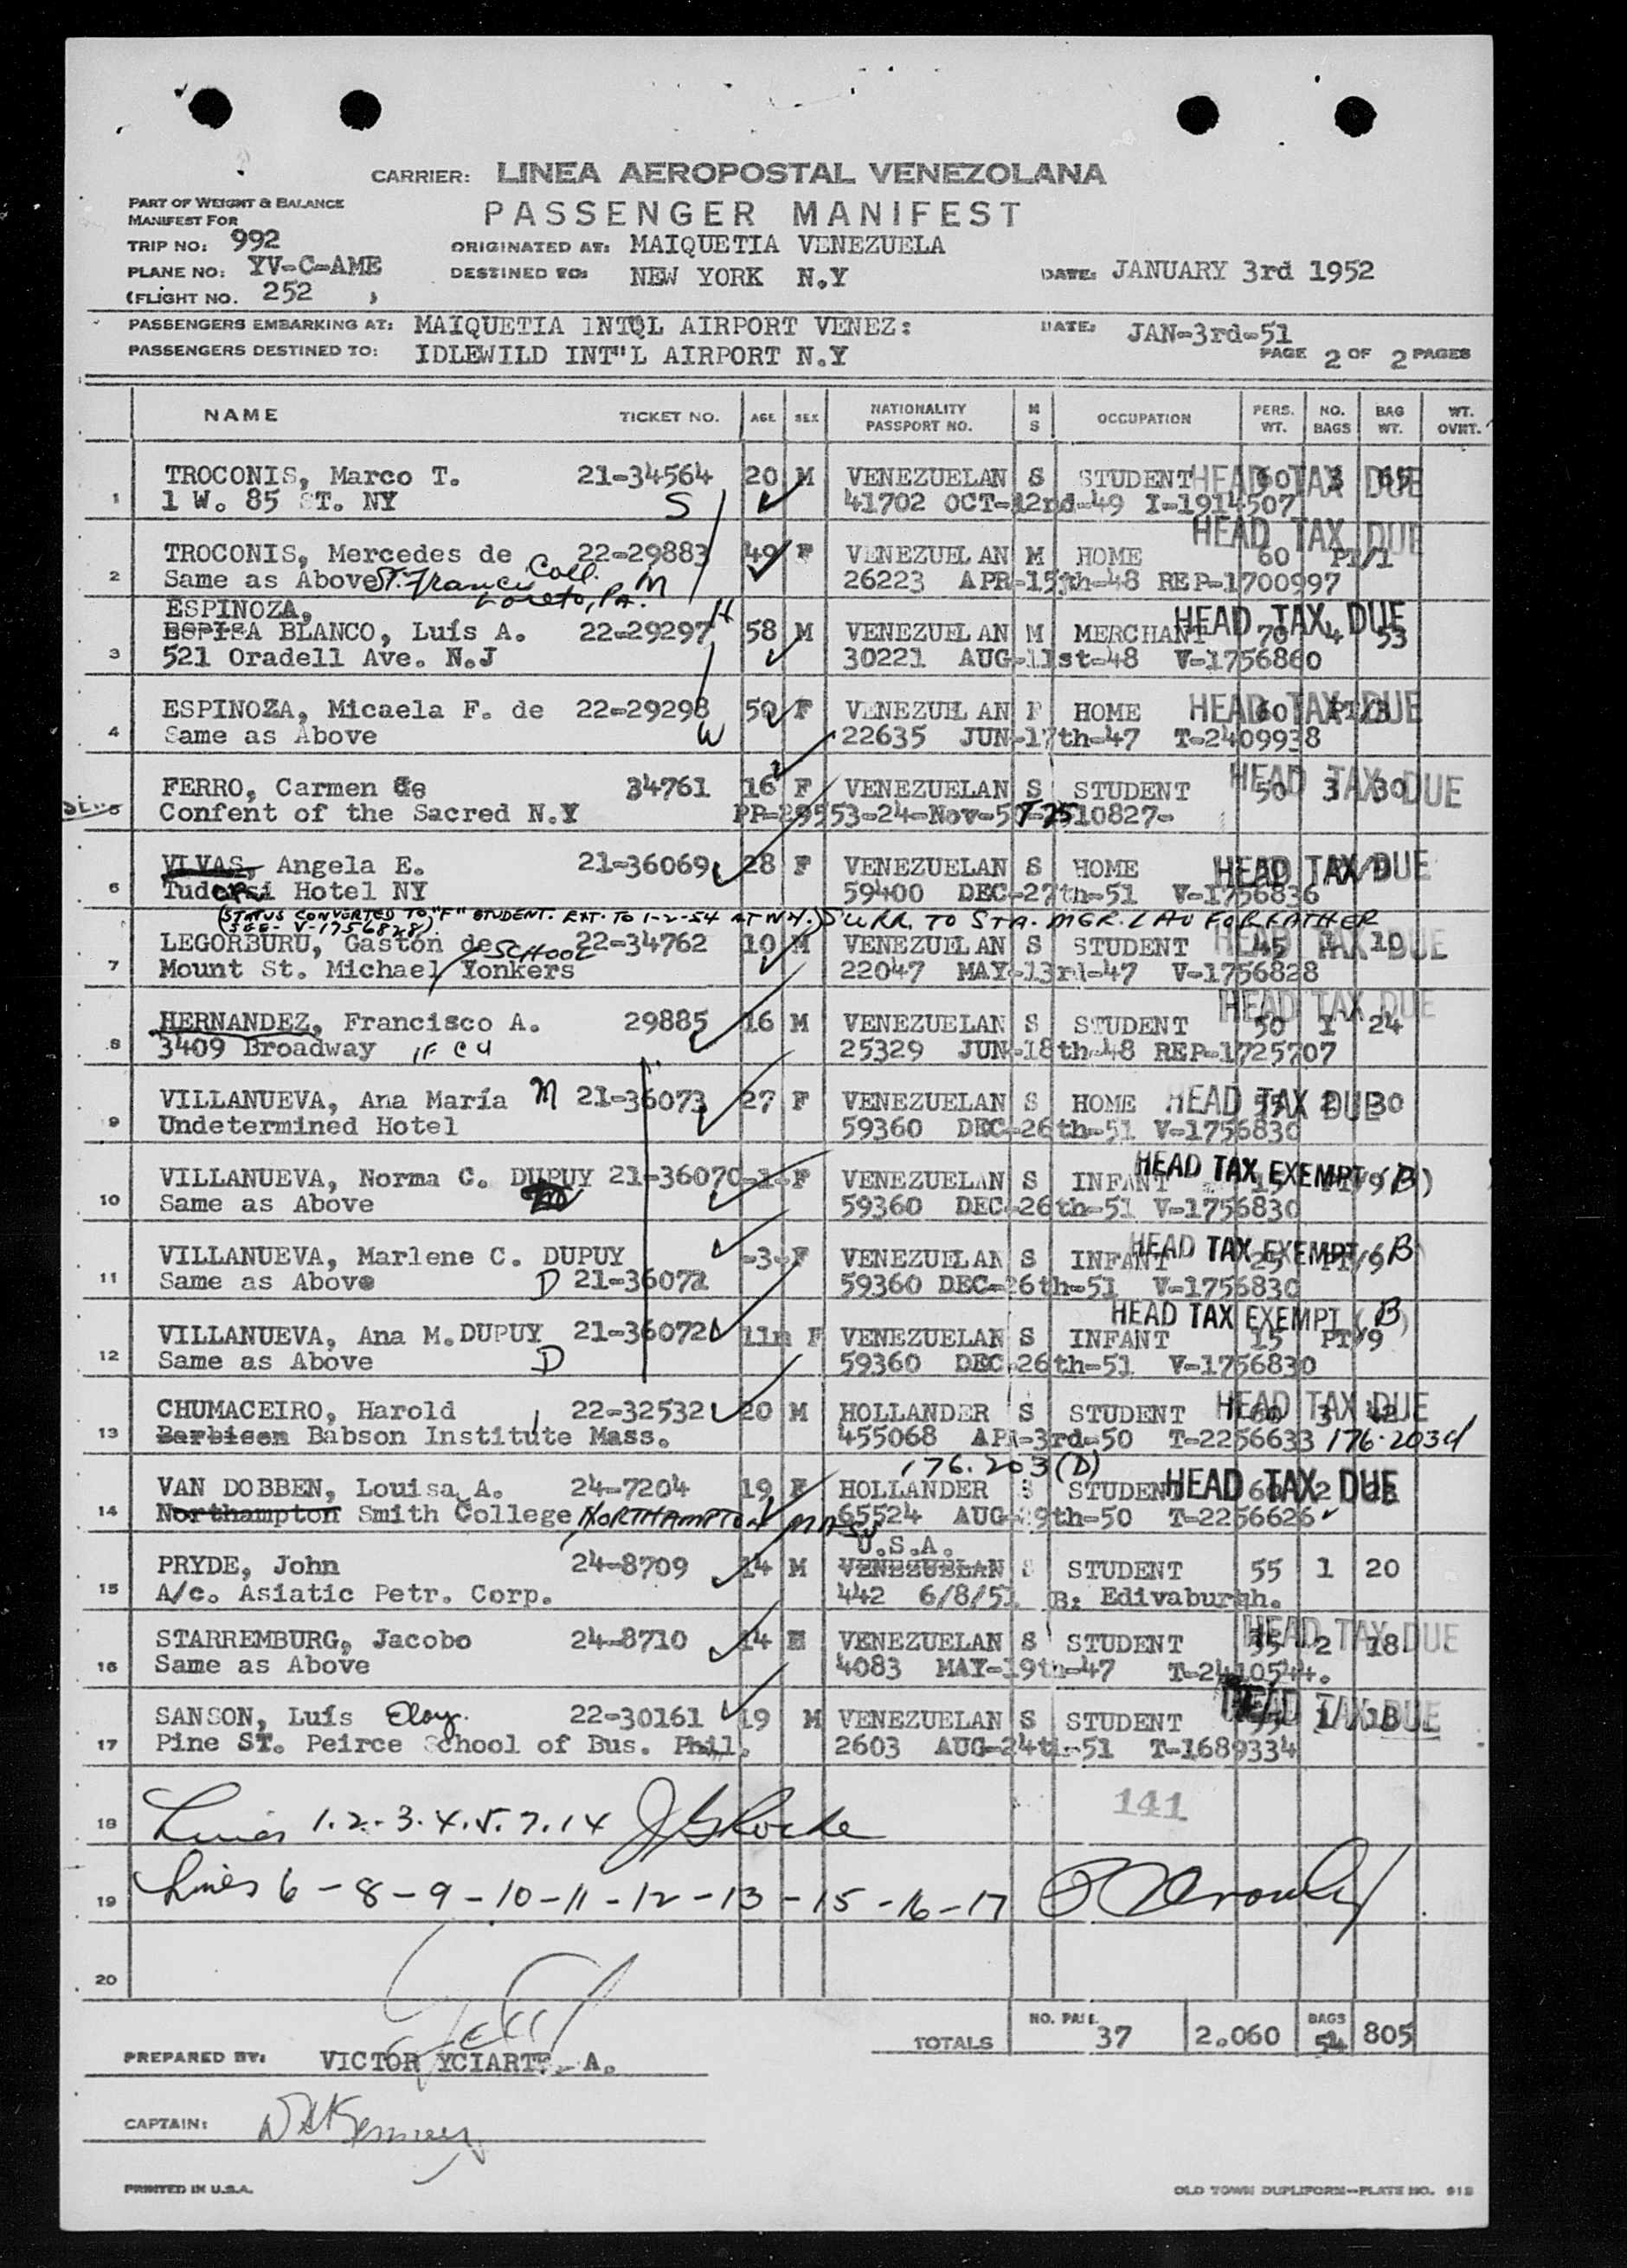 CARRIER: LINEA AEROPOSTAL VENEZOLANA
PART OF WEIGHT & BALANCE
MANIFEST FOR
PASSENGER MANIFEST
TRIP NO: 992
ORIGINATED AT: MAIQUETIA VENEZUELA
PLANE NO: YV-C-AME
DESTINED TO: NEW YORK N.Y
DATE: JANUARY 3rd 1952
(FLIGHT NO. 252 )
PASSENGERS EMBARKING AT: MAIQUETIA INTQL AIRPORT VENEZ:
DATE: JAN-3rd-51
PASSENGERS DESTINED TO: IDLEWILD INT"L AIRPORT N.Y
PAGE 2 OF 2 PAGES
NAME TICKET NO. AGE SEX NATIONALITY PASSPORT NO. M S OCCUPATION PERS. WT. NO. BAGS BAG WT. WT. OVRT.
TROCONIS, Marco T. 21-34564 20 M VENEZUELAN S STUDENT 60 3 HEAD TAX DUE
1 1 W. 85 ST. NY S 41702 OCT-12nd-49 I-1914507
HEAD TAX DUE
TROCONIS, Mercedes de 22-29883 49 F VENEZUELAN M HOME 60 PT/1
2 Same as Above St. Francis Coll. Loreto, PA. M 26223 APR-15th-48 REP-1700997
ESPINOZA, H HEAD TAX DUE
ESPISA BLANCO, Luís A. 22-29297 58 M VENEZUELAN M MERCHANT 70 4 53
3 521 Oradell Ave. N.J 30221 AUG-11st-48 V-1756860
ESPINOZA, Micaela F. de 22-29298 50 F VENEZUELAN F HOME 60 PT/3 HEAD TAX DUE
4 Same as Above W 22635 JUN-17th-47 T-2409938
FERRO, Carmen de 34761 16 F VENEZUELAN S STUDENT 50 3 30 HEAD TAX DUE
5 Confent of the Sacred N.Y PP-29553-24-Nov-50 T-2510827-
VIVAS, Angela E. 21-36069 28 F VENEZUELAN S HOME HEAD TAX DUE
6 Tudor Hotel NY 59400 DEC-27th-51 V-1756836
(STATUS CONVERTED TO "F" STUDENT. EXT. TO 1-2-54 AT N.Y.) SURR. TO STA. MGR. LAV FOR FATHER
(SEE- V-1756828)
LEGORBURU, Gastón de 22-34762 10 M VENEZUELAN S STUDENT 45 1 10 HEAD TAX DUE
7 Mount St. Michael SCHOOL Yonkers 22047 MAY-13rd-47 V-1756828
HEAD TAX DUE
HERNANDEZ, Francisco A. 29885 16 M VENEZUELAN S STUDENT 50 1 24
8 3409 Broadway 25329 JUN-18th-48 REP-1725707
VILLANUEVA, Ana María M 21-36073 27 F VENEZUELAN S HOME 55 2 30 HEAD TAX DUE
9 Undetermined Hotel 59360 DEC-26th-51 V-1756830
HEAD TAX EXEMPT (B)
VILLANUEVA, Norma C. DUPUY 21-36070 -1- F VENEZUELAN S INFANT 15 PT/9
10 Same as Above 59360 DEC-26th-51 V-1756830
HEAD TAX EXEMPT (B)
VILLANUEVA, Marlene C. DUPUY -3- F VENEZUELAN S INFANT 25 PT/9
11 Same as Above D 21-36071 59360 DEC-26th-51 V-1756830
HEAD TAX EXEMPT (B)
VILLANUEVA, Ana M. DUPUY 21-36072 11m F VENEZUELAN S INFANT 15 PT/9
12 Same as Above D 59360 DEC-26th-51 V-1756830
CHUMACEIRO, Harold 22-32532 20 M HOLLANDER S STUDENT 60 3 42 HEAD TAX DUE
13 Barbison Babson Institute Mass. 455068 APR-3rd-50 T-2256633 176.203d
176.203(D)
VAN DOBBEN, Louisa A. 24-7204 19 F HOLLANDER S STUDENT 60 2 HEAD TAX DUE
14 Northampton Smith College, NORTHAMPTON MASS 65524 AUG-29th-50 T-2256626
U.S.A.
PRYDE, John 24-8709 14 M VENEZUELAN S STUDENT 55 1 20
15 A/c. Asiatic Petr. Corp. 442 6/8/51 B: Edivaburgh.
STARREMBURG, Jacobo 24-8710 14 M VENEZUELAN S STUDENT 35 2 18 HEAD TAX DUE
16 Same as Above 4083 MAY-19th-47 T-2410544.
SANSON, Luís Eloy. 22-30161 19 M VENEZUELAN S STUDENT 55 1 18 HEAD TAX DUE
17 Pine ST. Peirce School of Bus. Phil. 2603 AUG-24th-51 T-1689334
141
18 Lines 1.2.-3.4.5.7.14
19 Lines 6-8-9-10-11-12-13-15-16-17
20
TOTALS NO. PASS. 37 2.060 BAGS 54 805
PREPARED BY: VICTOR YCIARTE A.
CAPTAIN:
PRINTED IN U.S.A.
OLD TOWN DUPLIFORM—PLATE NO. 918